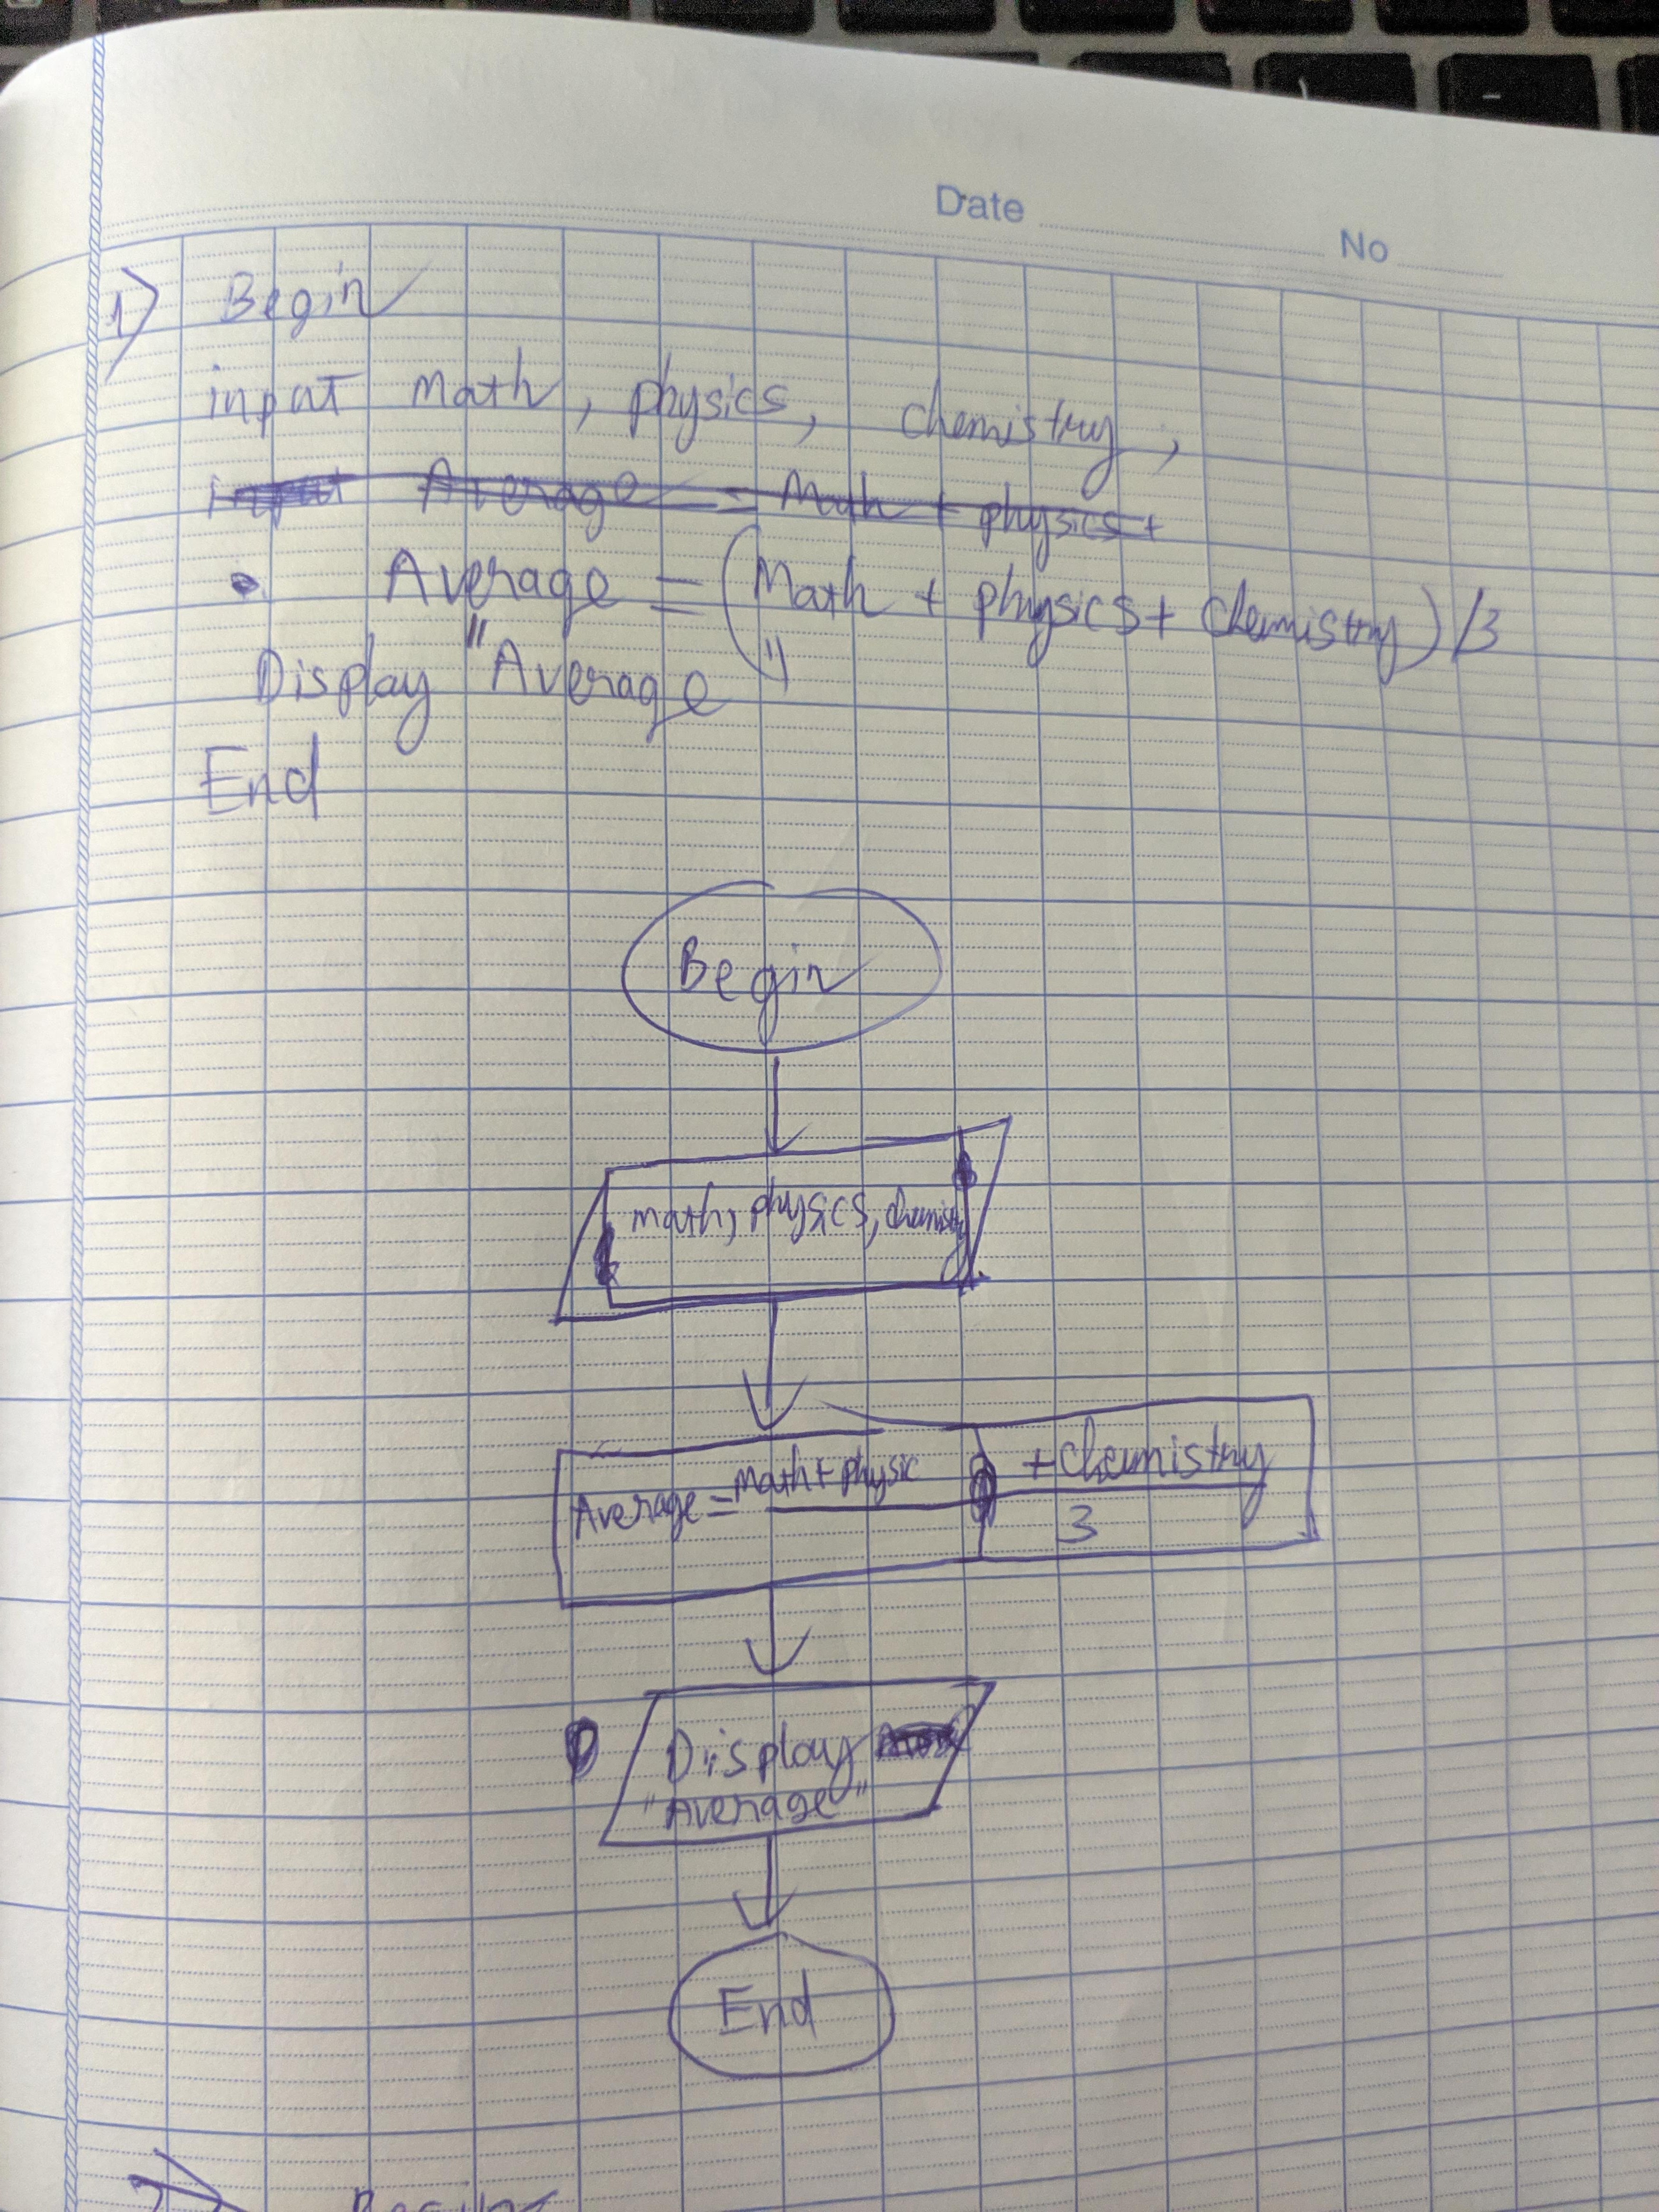 Date
No
1) Begin
input Math, physics, chemistry,
input Average = Math + physics +
Average = (Math + physics + chemistry) /3
Display "Average"
End
Begin
math, physics, chemistry
Average = Math + physic + chemistry
3
Display
"Average"
End
2) Begin